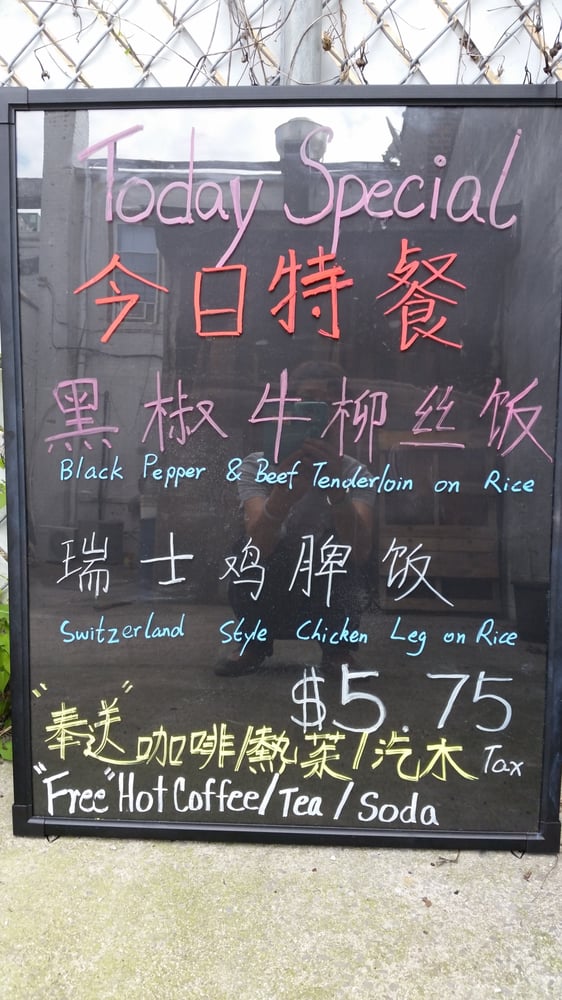 Today Special
今日特餐
黑椒牛柳丝饭
Black Pepper & Beef Tenderloin on Rice
瑞士鸡脾饭
Switzerland Style Chicken Leg on Rice
$5.75
Tax
"奉送"咖啡/熱菜/汽木
"Free" Hot Coffee/Tea/Soda